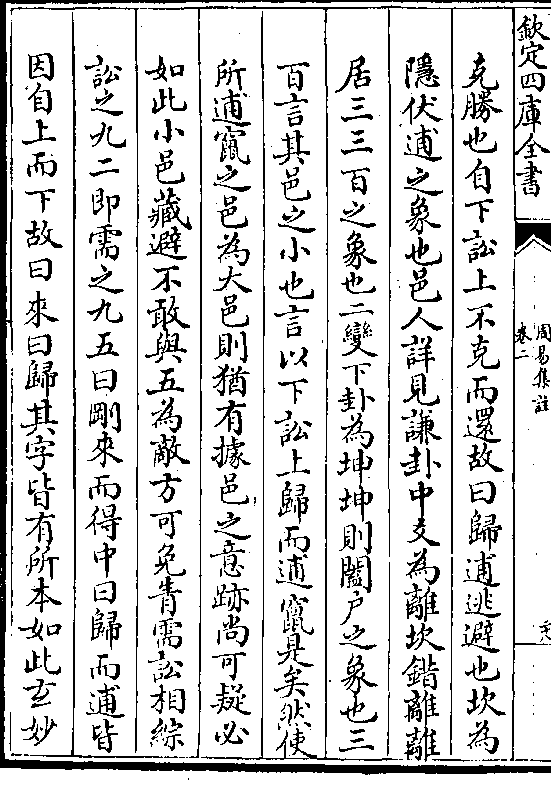 欽定四庫全書
周易集註
卷二
克勝也自下訟上不克而還故曰歸逋逃避也坎為
隱伏逋之象也邑人詳見謙卦中爻為離坎錯離離
居三三百之象也二變下卦為坤坤則闔戶之象也三
百言其邑之小也言以下訟上歸而逋竄是矣然使
所逋竄之邑為大邑則猶有據邑之意跡尚可疑必
如此小邑藏避不敢與五為敵方可免眚需訟相綜
訟之九二即需之九五曰剛來而得中曰歸而逋皆
因自上而下故曰來曰歸其字皆有所本如此玄妙